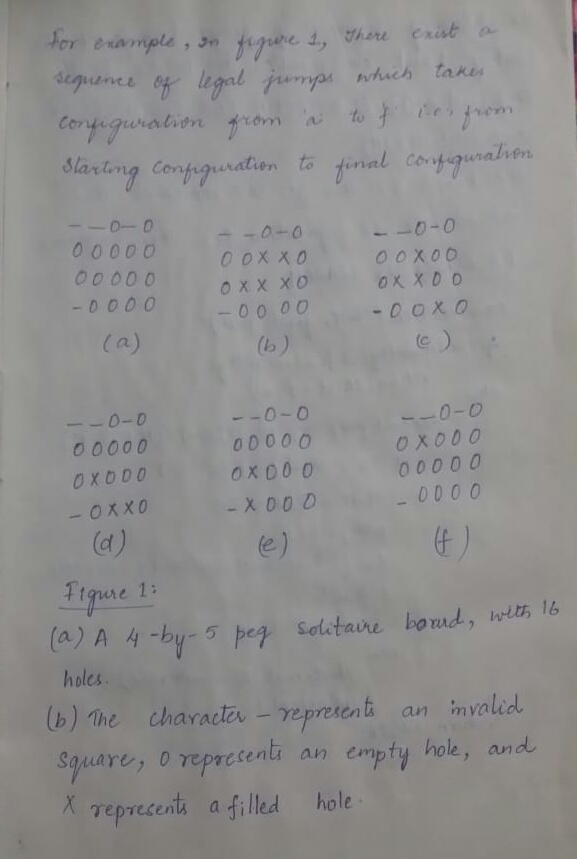 For example, in figure 1, there exist a
sequence of legal jumps which takes
configuration from 'a' to f i.e, from
Starting Configuration to final configuration
- - 0 - 0 - - 0 - 0 - - 0 - 0
0 0 0 0 0 0 0 X X 0 0 0 X 0 0
0 0 0 0 0 0 X X X 0 0 X X 0 0
- 0 0 0 0 - 0 0 0 0 - 0 0 X 0
(a) (b) (c)
- - 0 - 0 - - 0 - 0 - - 0 - 0
0 0 0 0 0 0 0 0 0 0 0 X 0 0 0
0 X 0 0 0 0 X 0 0 0 0 0 0 0 0
- 0 X X 0 - X 0 0 0 - 0 0 0 0
(d) (e) (f)
Figure 1:
(a) A 4-by-5 peg Solitaire board, with 16
holes.
(b) The character - represents an invalid
Square, 0 represents an empty hole, and
X represents a filled hole.